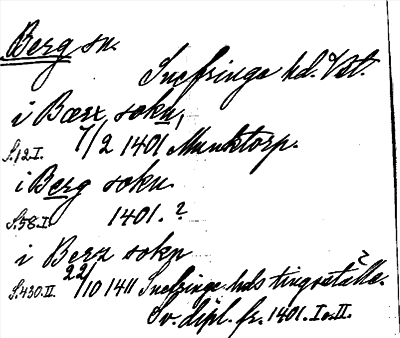 Berg sn.
Snefringe hd. Vstl.
i Bærx sokn,
S. 12. I. 7/2 1401 Munktorp.
i Berg sokn.
S. 58. I. 1401. ?
i Berx sokn
S. 430. II. 22/10 1411 Snefringe hds tingställe.
Sv. dipl. fr. 1401. I o. II.